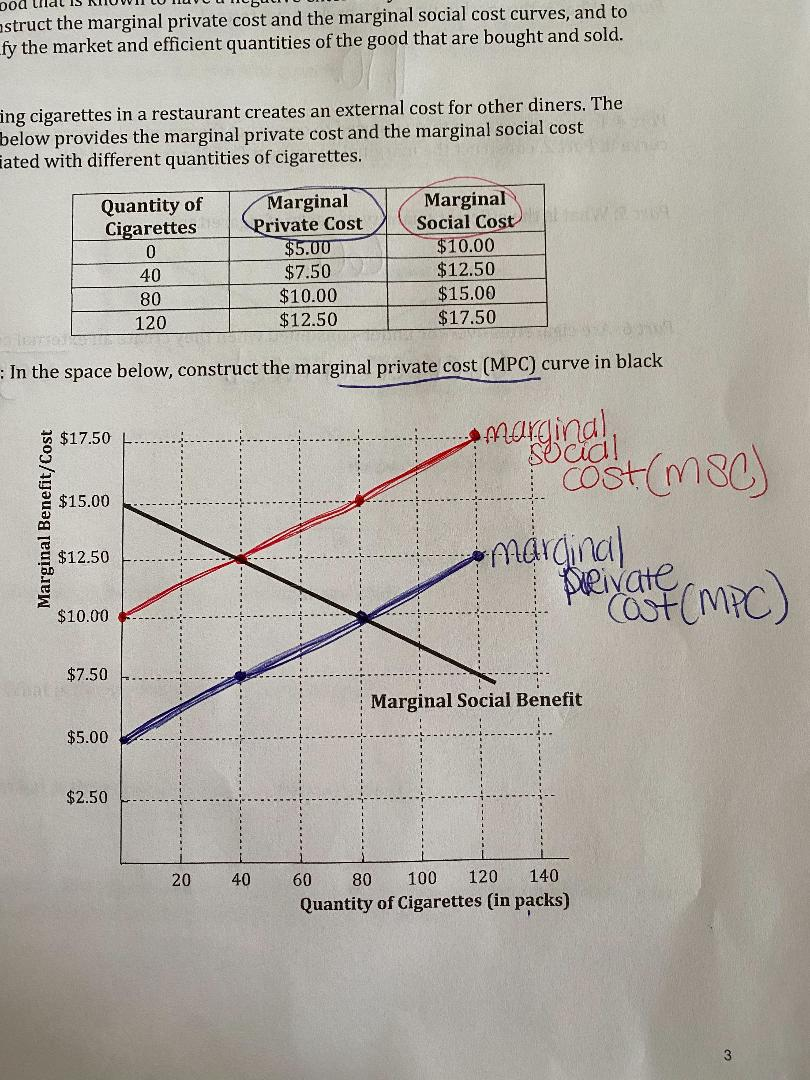 struct the marginal private cost and the marginal social cost curves, and to
fy the market and efficient quantities of the good that are bought and sold.
ing cigarettes in a restaurant creates an external cost for other diners. The
below provides the marginal private cost and the marginal social cost
iated with different quantities of cigarettes.
Quantity of Cigarettes Marginal Private Cost Marginal Social Cost
0 $5.00 $10.00
40 $7.50 $12.50
80 $10.00 $15.00
120 $12.50 $17.50
: In the space below, construct the marginal private cost (MPC) curve in black
Marginal Benefit/Cost
$17.50
$15.00
$12.50
$10.00
$7.50
$5.00
$2.50
marginal
social
cost (MSC)
marginal
private
cost (MPC)
Marginal Social Benefit
20 40 60 80 100 120 140
Quantity of Cigarettes (in packs)
3